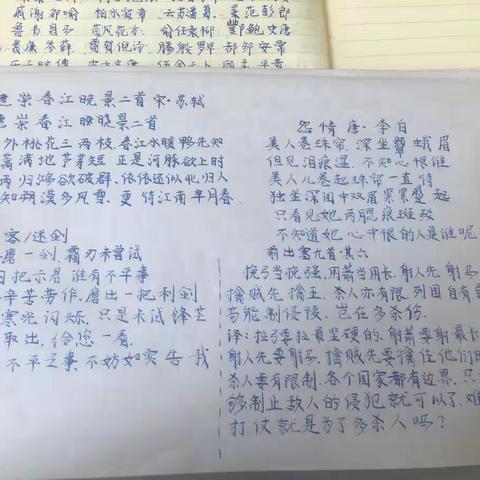 戚谢邹喻 柏水窦章 云苏潘葛 奚范彭郎
鲁韦昌马 苗凤花方 俞任袁柳 酆鲍史唐
费廉岑薛 雷贺倪汤 滕殷罗毕 郝邬安常
惠崇春江晚景二首 宋·苏轼
惠崇春江晚景二首
外桃花三两枝,春江水暖鸭先知
蒿满地芦芽短 正是河豚欲上时
两归鸿欲破群,依依还似北归人
知朔漠多风雪,更待江南半月春
客/述剑
磨一剑,霜刃未曾试
日把示君 谁有不平事
辛苦劳作,磨出一把利剑
寒光闪烁,只是未试锋芒
取出,给您一看,
不平之事,不妨如实告我
怨情 唐·李白
美人卷珠帘,深坐颦蛾眉
但见泪痕湿,不知心恨谁
美人儿卷起珠帘一直待
独坐深闺中双眉紧紧蹙起
只看见她两腮痕斑驳
不知道她心中恨的人是谁呢
前出塞九首·其六
挽弓当挽强,用箭当用长,射人先射马
擒贼先擒王,杀人亦有限,列国自有
苟能制侵陵,岂在多杀伤
译:拉弓要拉最坚硬的,射箭要射最长
射人先要射马,擒贼先要擒住他们的
杀人要有限制,各个国家都有边界,只
够制止敌人的侵犯就可以了,难
打仗就是为了多杀人吗?